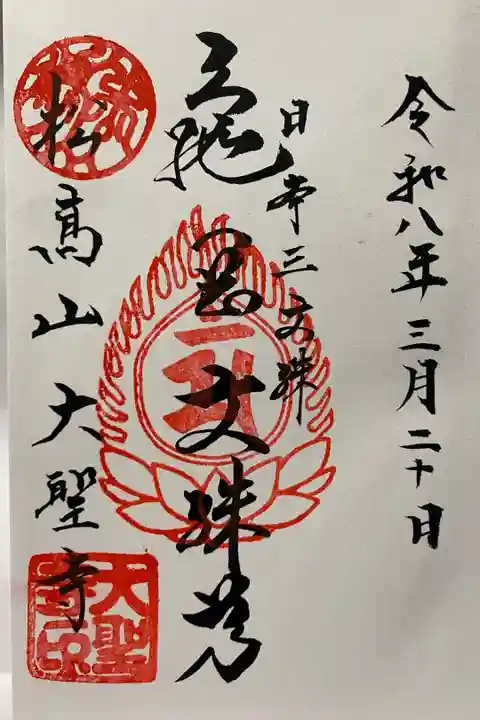 令和八年三月二十日
日本三文殊
亀岡文殊
松高山大聖寺
大聖寺印